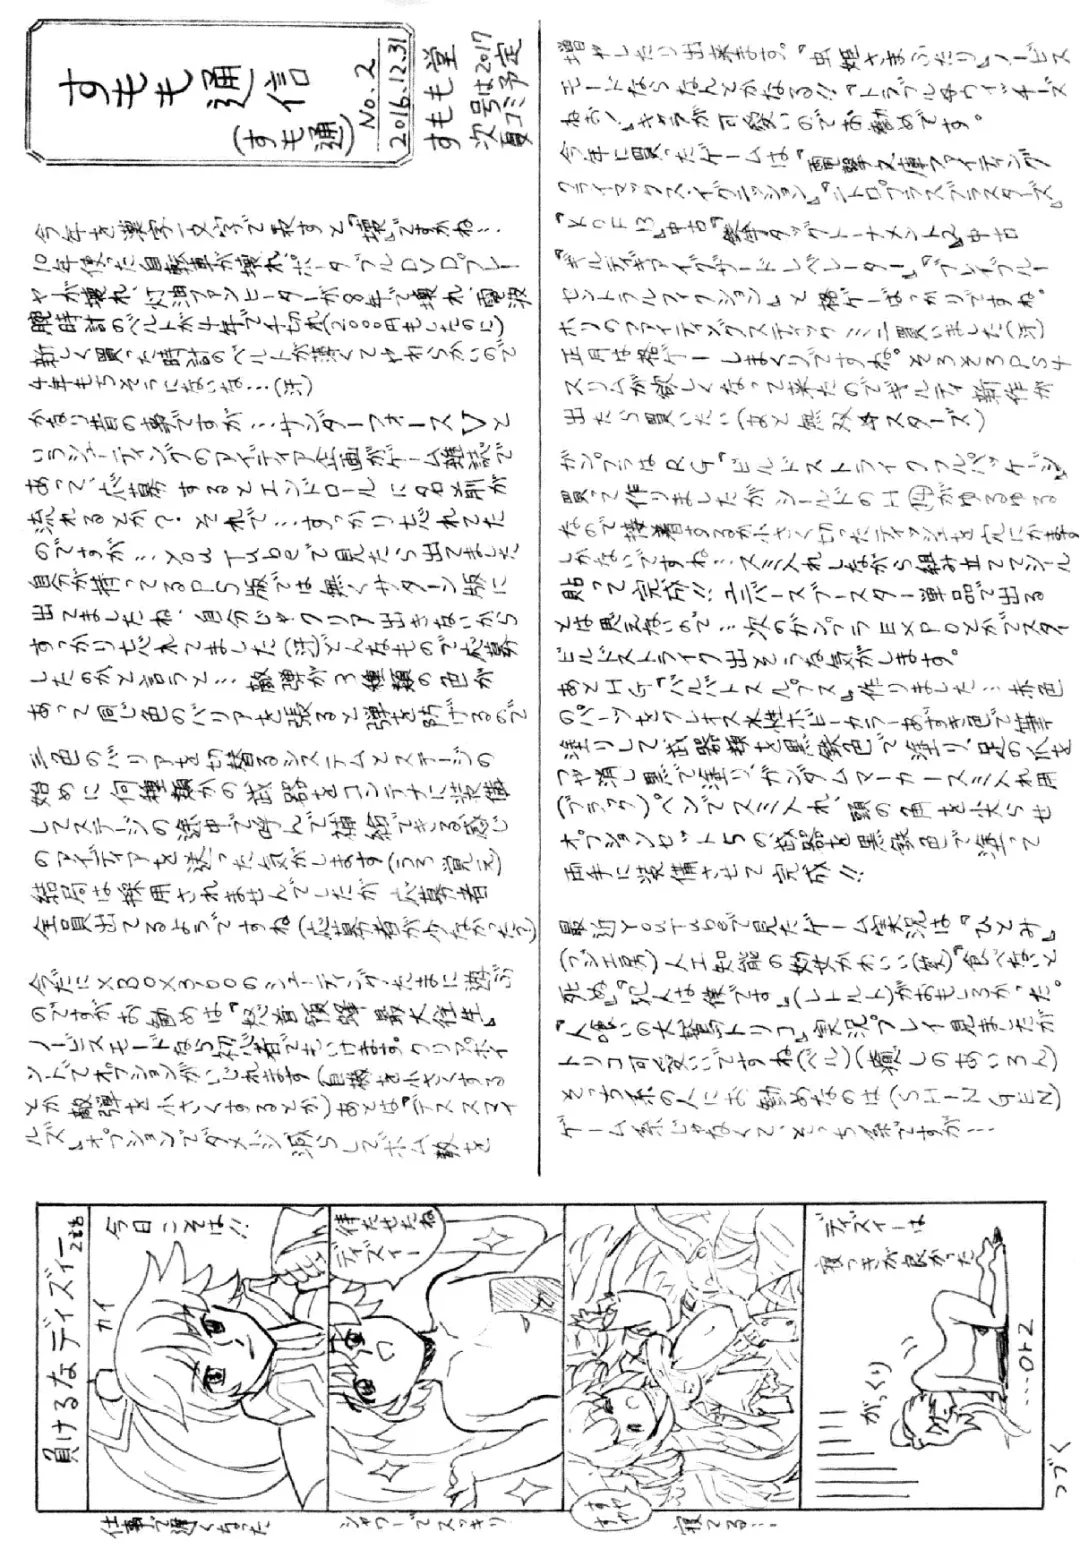 すもも通信
(すも通)
No.2
2016.12.31
すもも堂
次号は2017
夏コミ予定
今年を漢字一文字で表すと『壊』ですかね…
10年使った自転車が壊れ、ポータブルDVDプレー
ヤーが壊れ、灯油ファンヒーターが8年で壊れ、電波
腕時計のベルトが4年で千切れ(2000円もしたのに)
新しく買った時計のベルトが薄くてやわらかいので
4年もちそうにないな…(汗)
かなり昔の事ですが…サンダーフォースVと
いうシューティングのアイディア企画がゲーム雑誌で
あって、応募するとエンドロールに名前が
流れるとか?それで…すっかり忘れてた
のですが…YouTubeで見たら出てました
自分が持ってるPS版では無くサターン版に
出てましたね、自分じゃクリア出きないから
すっかり忘れてました(汗)どんなもので応募
したのかと言うと…敵弾が3種類の色が
あって同じ色のバリアを張ると弾を防げるので
三色のバリアを切替るシステムとステージの
始めに何種類かの武器をコンテナに装備
してステージの途中で呼んで補給できる感じ
のアイディアを送った気がします(うろ覚え)
結局は採用されませんでしたが応募者
全員出てるようですね(応募者が少なかった?)
今だにXBOX360のシューティングたまに遊ぶ
のですがお勧めは『怒首領蜂最大往生』
ノービスモードなら初心者でもいけます。クリアポイ
ントでオプションがいじれます(自機を小さくする
とか敵弾を小さくするとか)あとは『デススマイ
ルズ』オプションでダメージ減らしてボム数を
増やしたり出来ます。『虫姫さまふたり』ノービス
モードならなんとかなる!!『トラブル☆ウィッチーズ
ねぉ!』キャラが可愛いのでお勧めです。
今年に買ったゲームは『電撃文庫ファイティング
クライマックスイグニッション』『ニトロプラスブラスターズ』
『KOF13』中古『鉄拳タッグトーナメント2』中古
『ギルティギアイグザードレベレーター』『ブレイブルー
セントラルフィクション』と格ゲーばっかりですね。
ホリのファイティングスティックミニ買いました(汗)
正月は格ゲーしまくりですね。そろそろPS4
スリムが欲しくなって来たのでギルティ新作が
出たら買いたい(あと無双☆スターズ)
ガンプラはRG『ビルドストライクフルパッケージ』
買って作りましたがシールドのH⑭がゆるゆる
なので接着するか小さく切ったティッシュを穴にかます
しかないですね…スミ入れしながら組み立ててシール
貼って完成!!ユニバースブースター単品で出る
とは思えないので…次のガンプラEXPOとかでスター
ビルドストライク出そうな気がします。
あとHG『バルバトスルプス』作りました…赤色
のパーツをクレオス水性ホビーカラーあずき色で筆
塗りして武器類を黒鉄色で塗り、足の爪を
つや消し黒で塗り、ガンダムマーカースミ入れ用
(ブラック)ペンでスミ入れ、頭の角を尖らせ
オプションセット5の武器を黒鉄色で塗って
両手に装備させて完成!!
最近YouTubeで見たゲーム実況は『ひとみ』
(フジ工房)人工知能の幼女かわいい(笑)『食べないと
死ぬ』『犯人は僕です』(レトルト)がおもしろかった。
『人喰いの大鷲トリコ』実況プレイ見ましたが
トリコ可愛いですね(ベル)(癒しのあいろん)
そっち系の人にお勧めなのは(SHIN GEN)
ゲーム系じゃなくて、そっち系ですが…
負けるなディズィー
カイ
今日こそは!!
仕事で遅くなった
待たせたね
ディズィー
シャワーでスッキリ
すやすや
寝てる…
ディズィーは
寝つきが良かった
がっくり
…orz
つづく